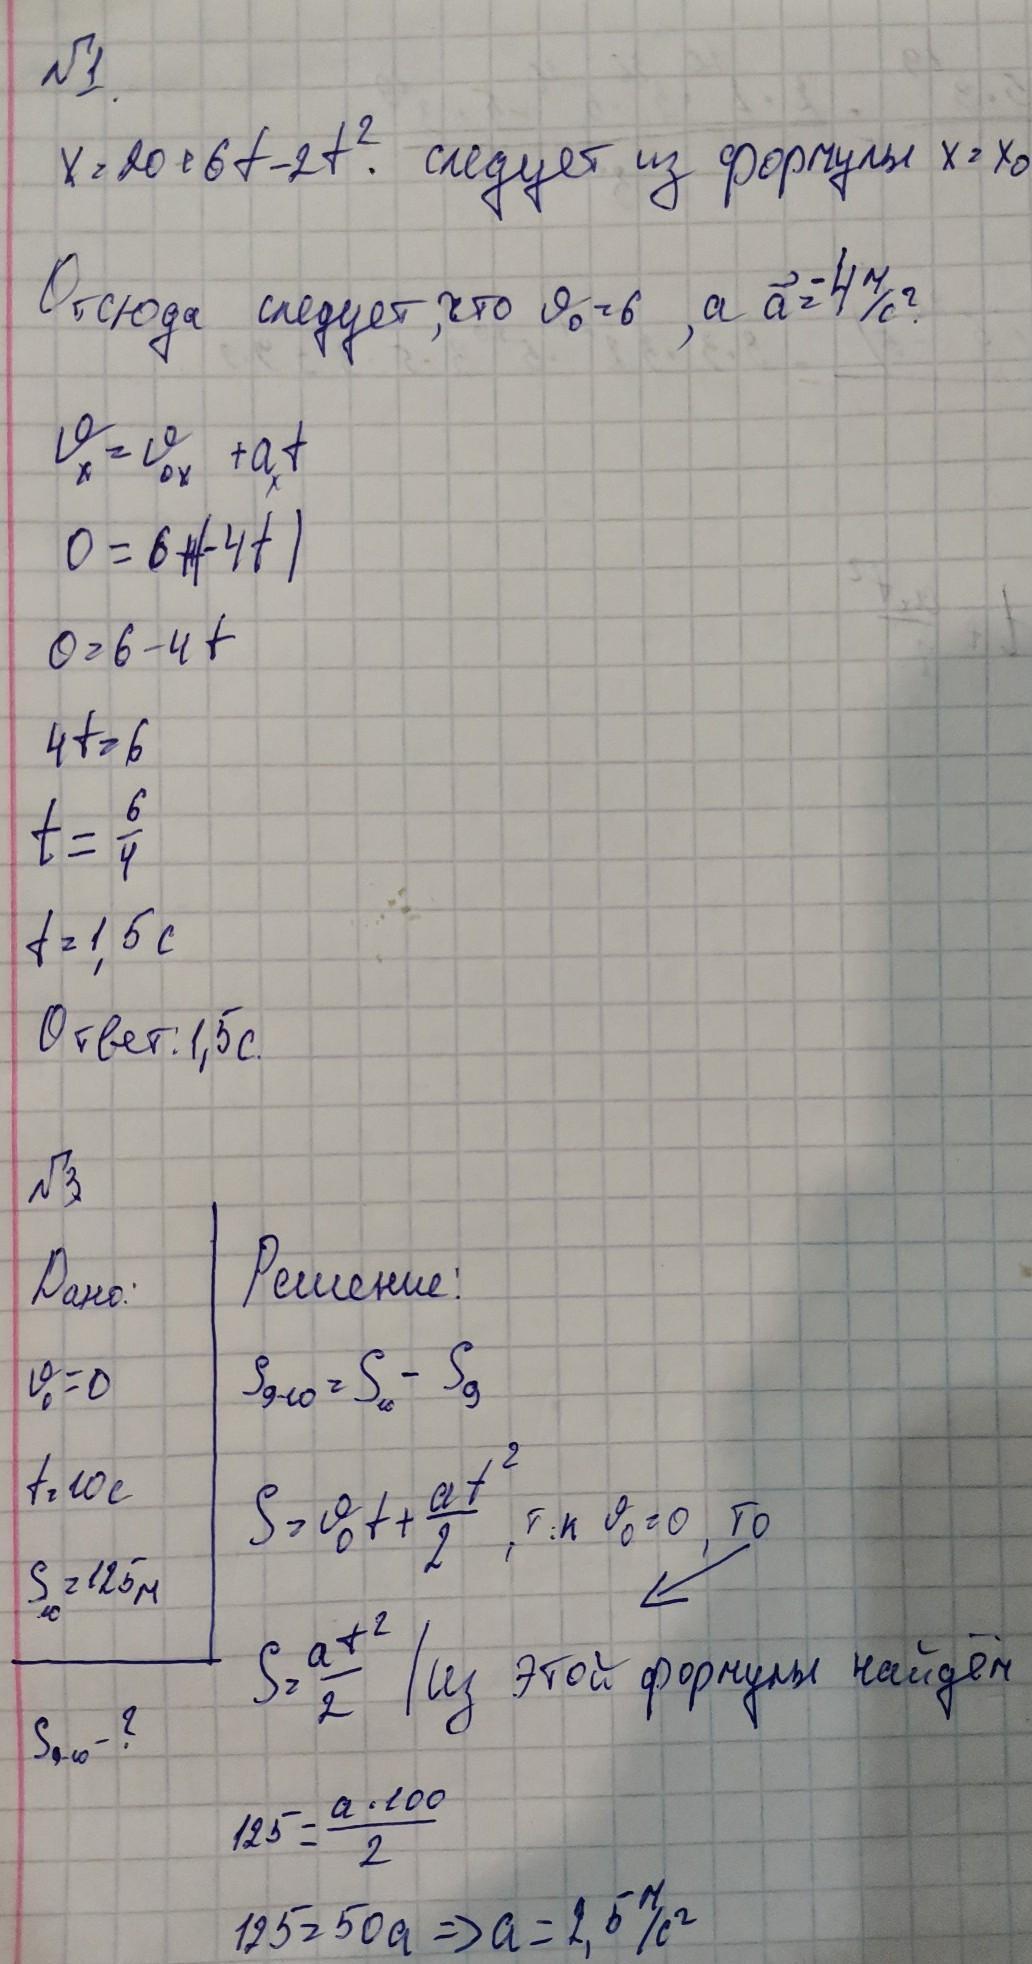 №1.
x=20+6t-2t². следует из формулы x=x₀
Отсюда следует, что ϑ₀=6, а a⃗=-4 м/с².
ϑₓ=ϑ₀ₓ+aₓt
0=6+(-4t)
0=6-4t
4t=6
t=6/4
t=1,5с
Ответ: 1,5с.
№3
Дано:
ϑ₀=0
t=10с
S₁₀=125м
S₉₋₁₀-?
Решение:
S₉₋₁₀=S₁₀-S₉
S=ϑ₀t+at²/2, т.к ϑ₀=0, то
S=at²/2 /из этой формулы найдём
125=a·100/2
125=50a => a=2,5 м/с²